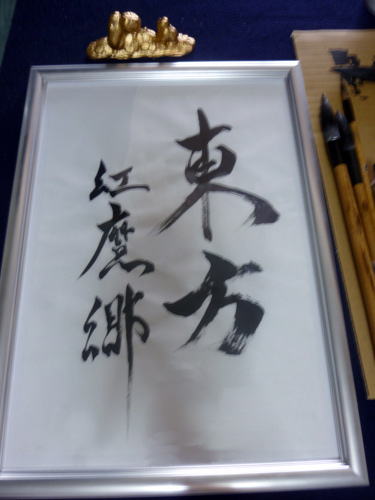 東方
紅魔郷